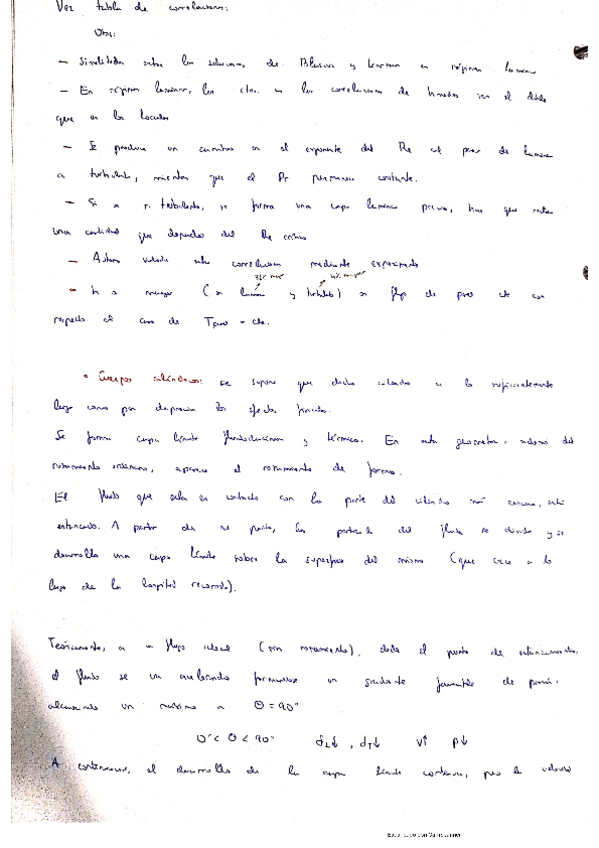 Ver tabla de correlaciones:
Obs:
- Similitudes entre las soluciones de Blasius y en régimen laminar
- En régimen laminar, los ctes. en las correlaciones de son el doble
que en los locales
- Se produce un cambio en el exponente del Re al pasar de laminar
a turbulento, mientras que el Pr permanece constante.
- Si a r. turbulento, se forma una capa laminar previa, hay que restar
una cantidad que depende del Re crítico
- validado estas correlaciones mediante experimento
- h es mayor (en laminar y turbulento) en flujo de pared cte con
respecto al caso de Tpared = cte.
• Cuerpos cilíndricos: se supone que dicho cilindro es lo suficientemente
largo como para despreciar los efectos
Se forma capa límite fluidodinámica y térmica. En esta geometría, además del
rozamiento ordinario, aparece el rozamiento de forma.
El fluido que está en contacto con la parte del cilindro más cercana, está
estancado. A partir de ese punto, las partículas del fluido se dividen y se
desarrolla una capa límite sobre la superficie del mismo (que crece a lo
largo de la longitud recorrida).
Teóricamente, en un flujo ideal (sin rozamiento), desde el punto de estancamiento,
el fluido se va acelerando formándose un gradiente favorable de presión,
alcanzando un máximo a θ = 90°
0° < θ < 90° V↑ p↓
A continuación, el desarrollo de la capa límite continúa, pero la velocidad